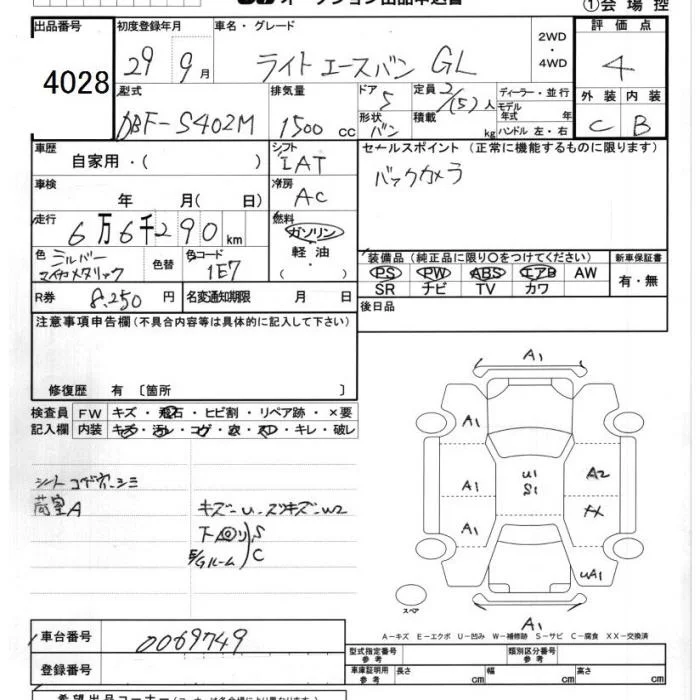 オークション出品申込書
①会場控
出品番号 初度登録年月 車名・グレード 評価点
4028 29 9月 ライトエースバン GL 2WD・4WD 4
型式 排気量 ドア 定員 ディーラー・並行 外装 内装
DBF-S402M 1500 cc 5 2/(5)人 モデル年式 年 C B
形状 バン 積載 kg ハンドル 左・右
車歴 シフト セールスポイント (正常に機能するものに限ります)
自家用・( ) IAT バックカメラ
車検 冷房
年 月( 日) AC
走行 燃料
6万6千290km ガソリン
軽油
・
色 シルバーマイカメタリック 色替 色コード 1E7
装備品 (純正品に限り○をつけてください) 新車保証書
PS PW ABS エアB AW 有・無
SR ナビ TV カワ
R券 8,250円 名変通知期限 月 日 後日品
注意事項申告欄 (不具合内容等は具体的に記入して下さい)
修復歴 有 〔箇所 〕
検査員 FW キズ・飛石・ヒビ割・リペア跡・×要
記入欄 内装 キズ・汚レ・コゲ・穴・スレ・キレ・破レ
A1
A1
A1 U1 A2
S1
A1
UA1
シート
荷室A キズ〜U
S
E/Gルーム C
スペア
A1
A−キズ E−エクボ U−凹み W−補修跡 S−サビ C−腐食 XX−交換済
車台番号 0069749
型式指定番号 参考 類別区分番号 参考
登録番号
車庫証明用 参考 長さ cm 幅 cm 高さ cm
希望出品コーナー